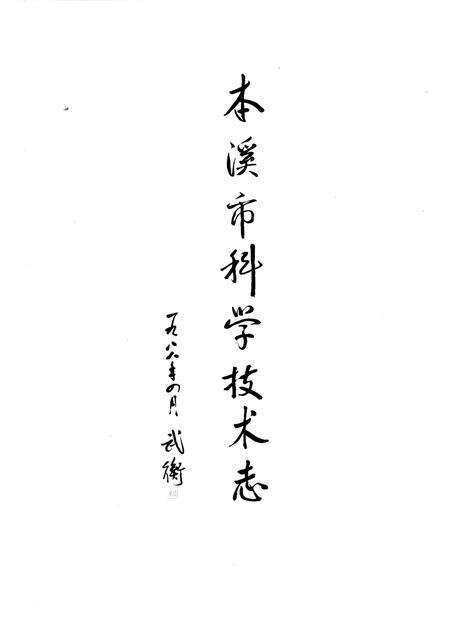 本溪市科学技术志
一九八八年四月 武衡